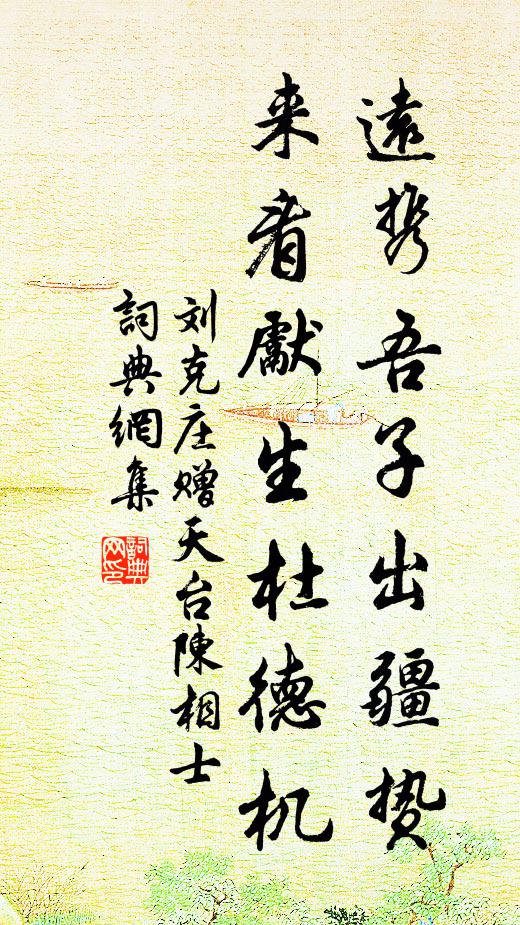 遠携吾子出疆贽
来看獻生杜德机
刘克庄赠天台陳相士
詞典網集
詞典网印